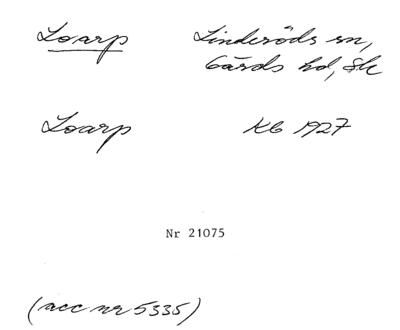 Loarp Linderöds sn,
Gärds hd, Sk
Loarp Kb 1927
Nr 21075
(acc nr 5335)